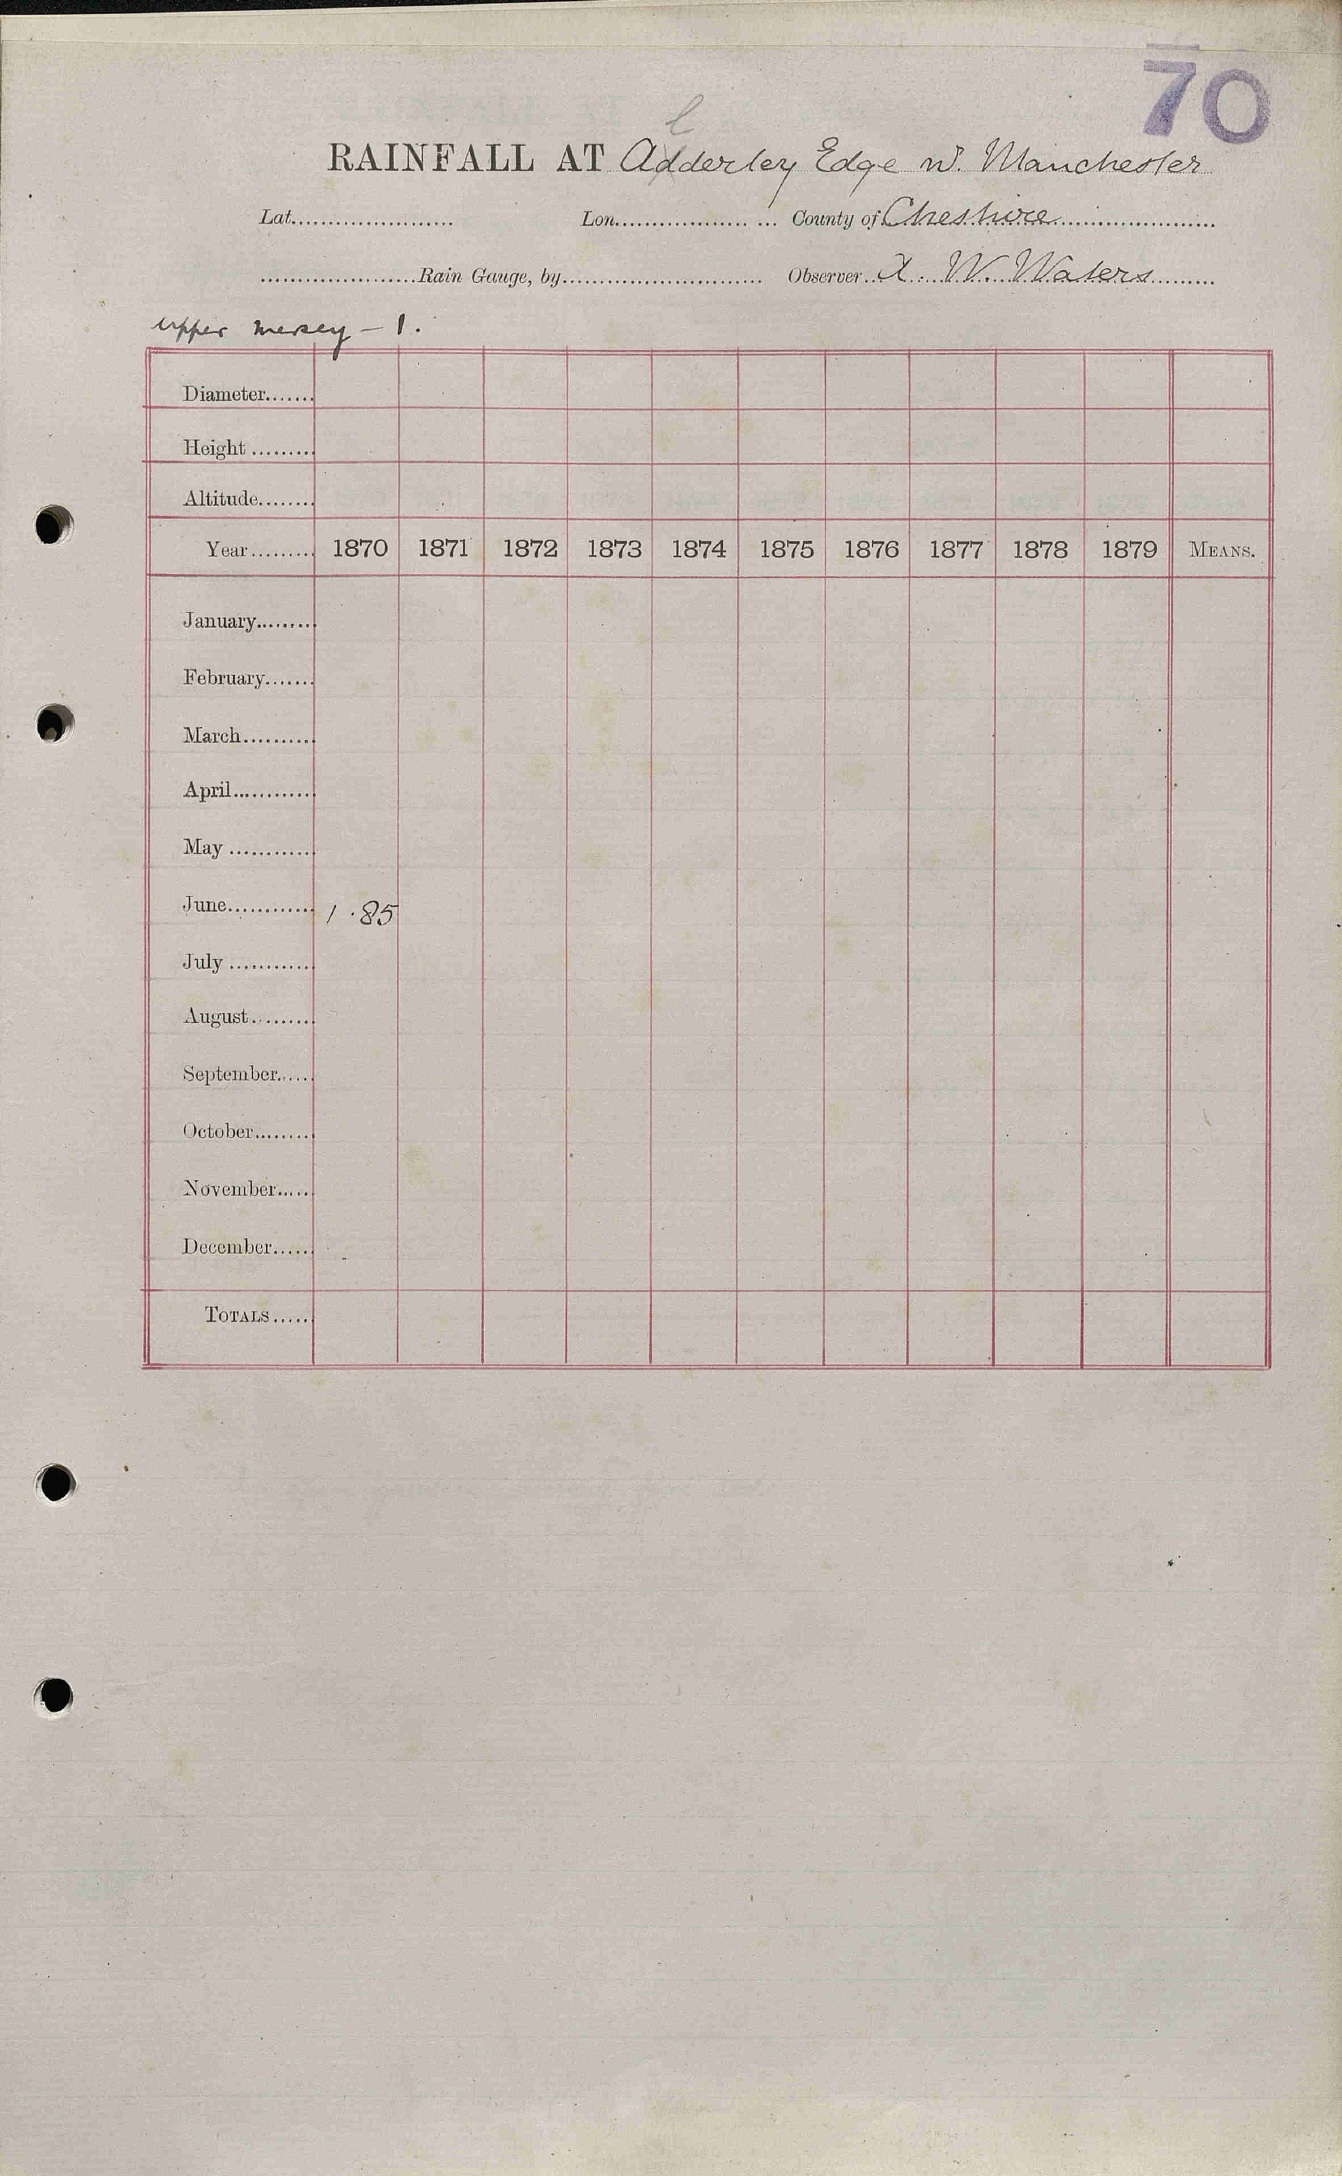 70
l
RAINFALL AT Adderley Edge nr. Manchester
Lat...................... Lon...................... County of Cheshire
.....................Rain Gauge, by........................... Observer A. W. Waters
Upper Mersey – 1.
Diameter.......
Height .........
Altitude........
Year......... 1870 1871 1872 1873 1874 1875 1876 1877 1878 1879 MEANS.
January........
February.......
March..........
April............
May ...........
June............ 1.85
July ............
August.........
September.....
October........
November.....
December.....
TOTALS.....